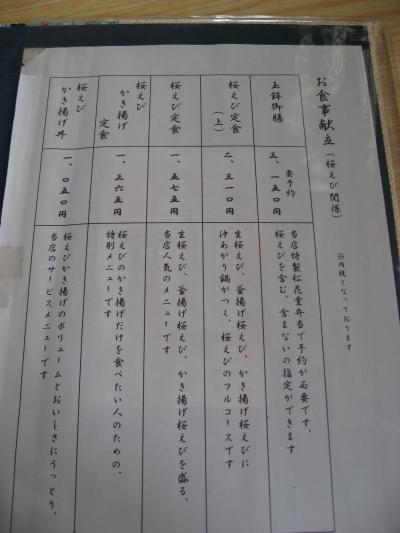 お食事献立(桜えび関係)
※内税となっております
玉鉾御膳
要予約
三、一五〇円
当店特製松花堂弁当で予約が必要です、
桜えびを含む、含まないの指定ができます
桜えび定食
(上)
二、三一〇円
生桜えび、釜揚げ桜えび、かき揚げ桜えびに
沖あがり鍋がつく、桜えびのフルコースです
桜えび定食
一、五七五円
生桜えび、釜揚げ桜えび、かき揚げ桜えびを盛る、
当店人気のメニューです
桜えび
かき揚げ
定食
一、三六五円
桜えびのかき揚げだけを食べたい人のための、
特別メニューです
桜えび
かき揚げ丼
一、〇五〇円
桜えびかき揚げのボリュームとおいしさにうっとり、
当店のサービスメニューです